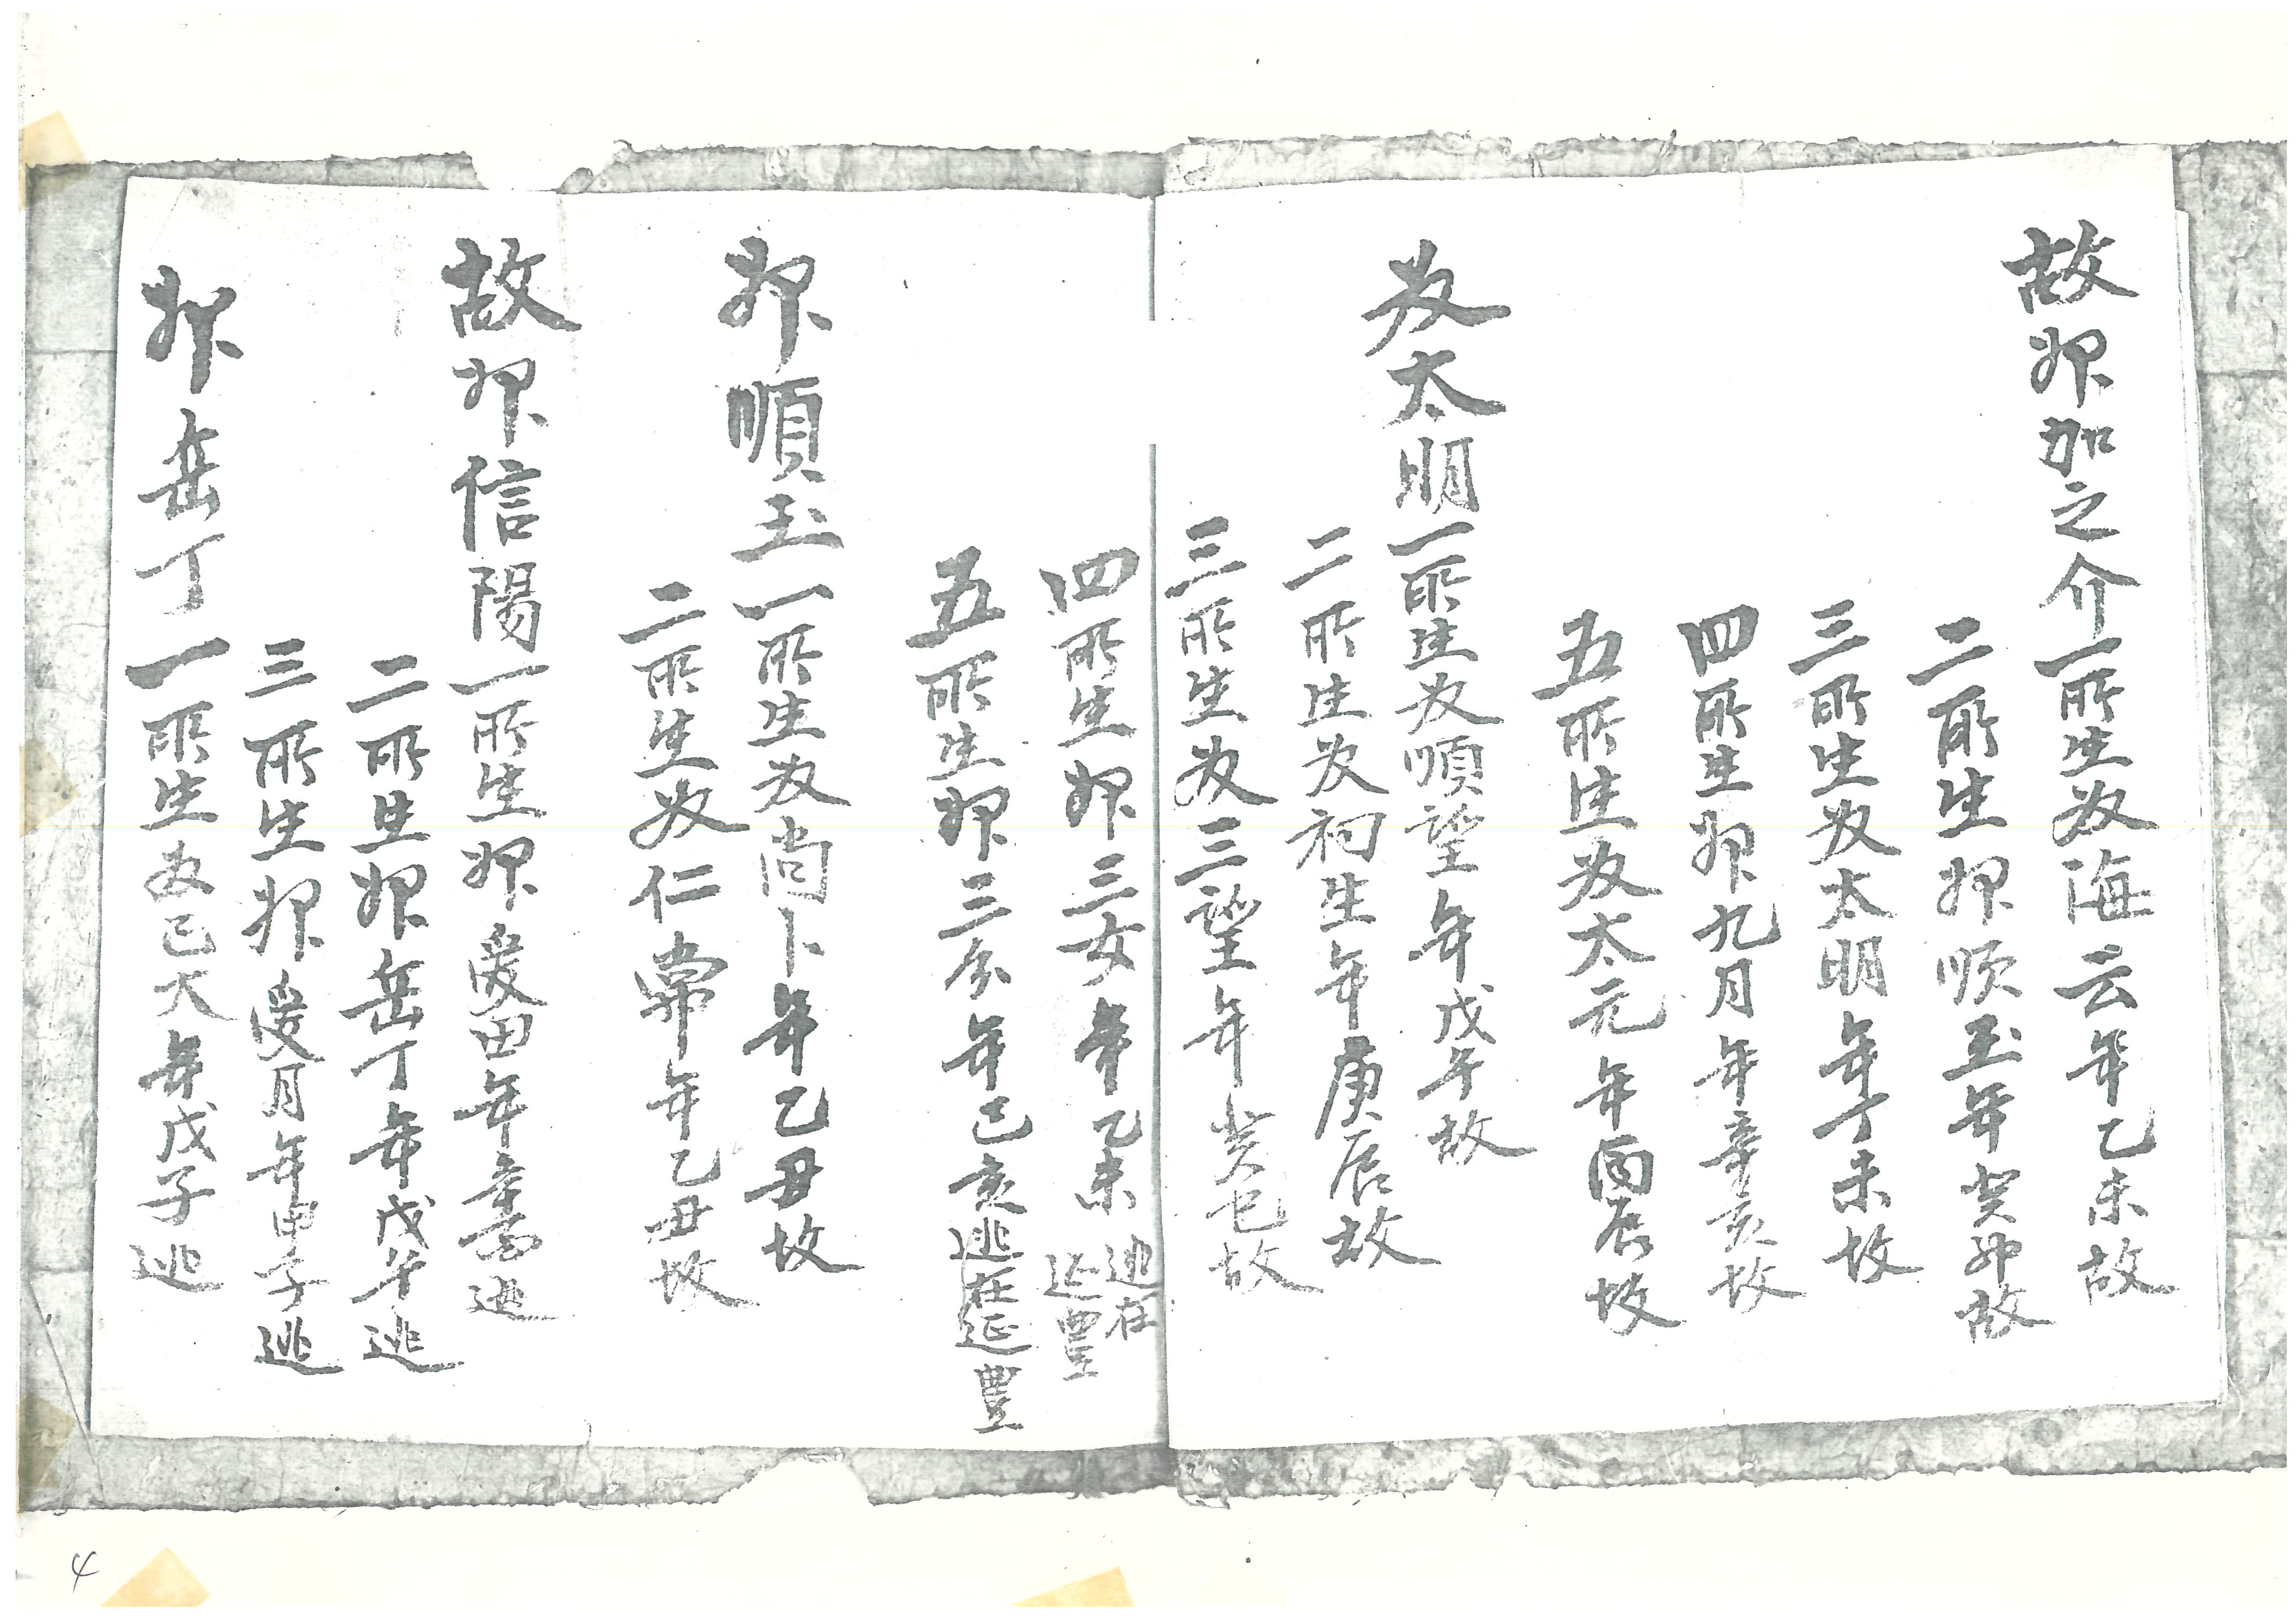 故婢加之介一所生奴海云年乙未故
二所生婢順玉年癸卯故
三所生奴太明年丁未故
四所生婢九月年辛亥故
五所生奴太元年丙辰故
奴太明一所生奴順望年戊午故
二所生奴祠生年庚辰故
三所生奴三望年癸巳故
四所生婢三女年乙未逃在延豊
五所生婢三分年己亥逃在延豊
婢順玉一所生奴尚卜年乙丑故
二所生奴仁常年乙丑故
故婢信陽一所生婢愛田年辛 逃
二所生婢岳丁年戊午逃
三所生婢愛月年甲子逃
婢岳丁一所生奴已大年戊子逃
4